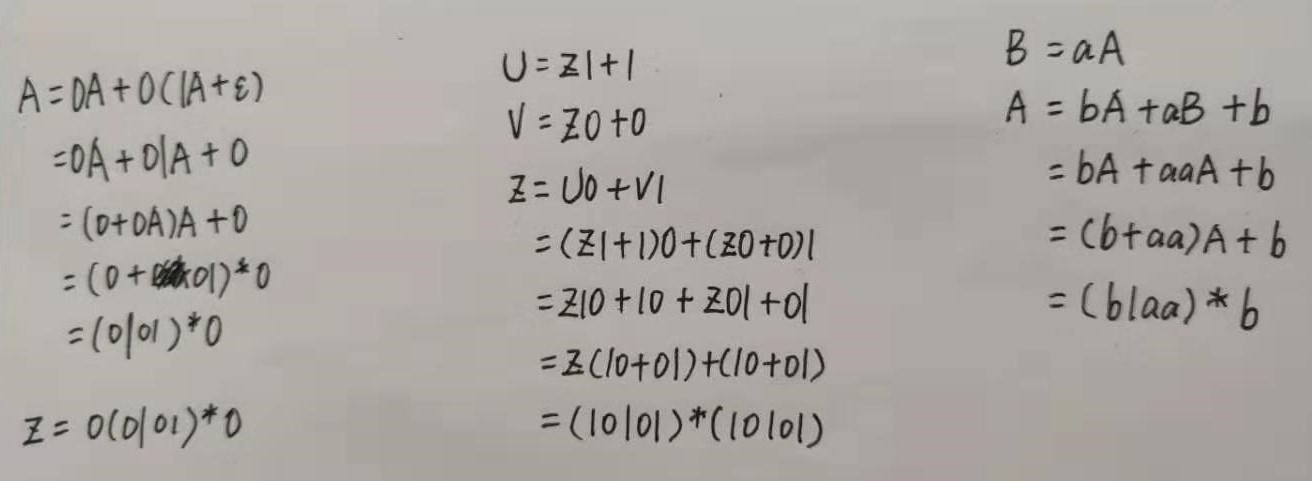 A=0A+0(1A+ε)
=0A+01A+0
=(0+0A)A+0
=(0+01)*0
=(0|01)*0
Z=0(0|01)*0
U=Z1+1
V=Z0+0
Z=U0+V1
=(Z1+1)0+(Z0+0)1
=Z10+10+Z01+01
=Z(10+01)+(10+01)
=(10|01)*(10|01)
B=aA
A=bA+aB+b
=bA+aaA+b
=(b+aa)A+b
=(b|aa)*b